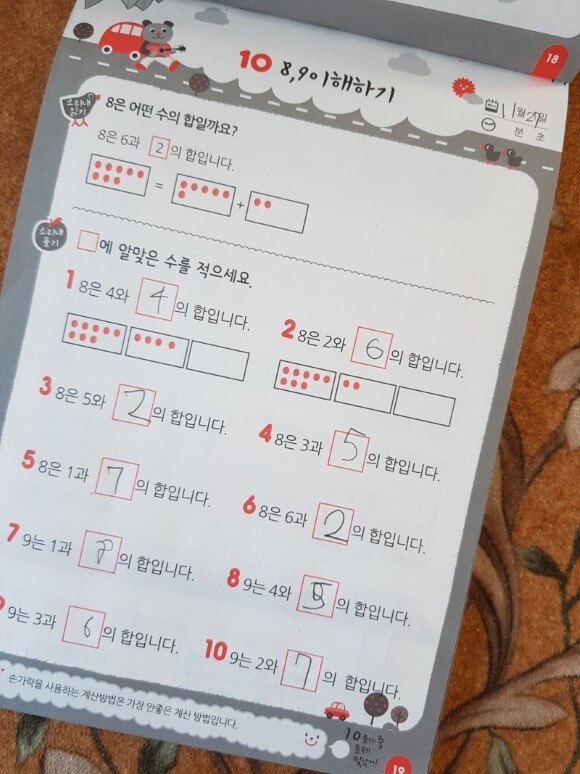 18
10 8,9이해하기
11월 29일
분 초
소리내 읽기
8은 어떤 수의 합일까요?
8은 6과 2 의 합입니다.
= +
소리내 풀기
에 알맞은 수를 적으세요.
1 8은 4와 4 의 합입니다.
2 8은 2와 6 의 합입니다.
3 8은 5와 2 의 합입니다.
4 8은 3과 5 의 합입니다.
5 8은 1과 7 의 합입니다.
6 8은 6과 2 의 합입니다.
7 9는 1과 8 의 합입니다.
8 9는 4와 5 의 합입니다.
9는 3과 6 의 합입니다.
10 9는 2와 7 의 합입니다.
손가락을 사용하는 계산방법은 가장 안좋은 계산 방법입니다.
10 문제 중
문제
맞았어!
19